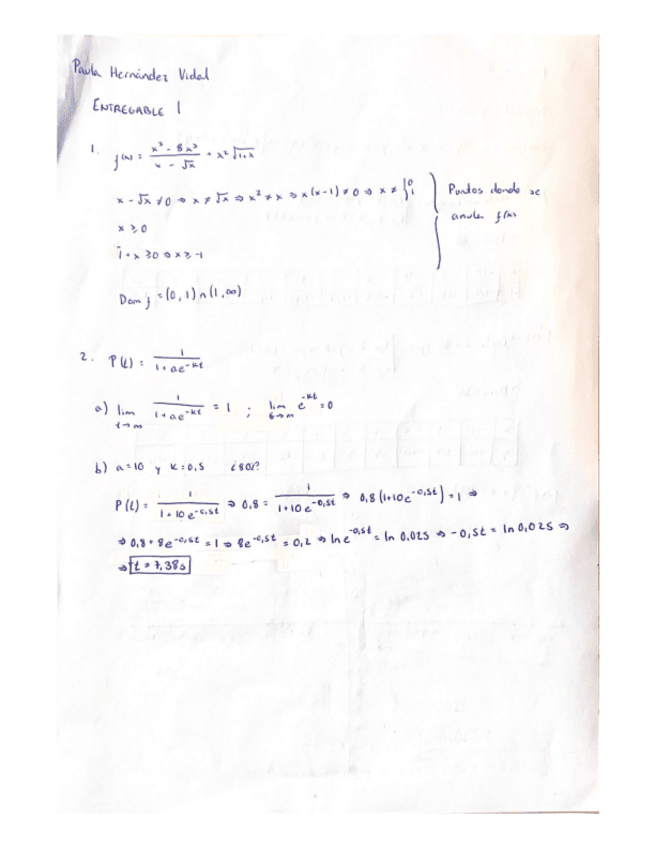 Paula Hernández Vidal
ENTREGABLE 1
1. f(x) = (x³ - 8x²)/(x - √x) + x²√(1+x)
x - √x ≠ 0 ⇒ x ≠ √x ⇒ x² ≠ x ⇒ x(x-1) ≠ 0 ⇒ x ≠ {0 1
Puntos donde se
anula f(x)
x ≥ 0
1 + x ≥ 0 ⇒ x ≥ -1
Dom f = (0, 1) ∩ (1, ∞)
2. P(t) = 1/(1 + ae^-kt)
a) lim t→∞ 1/(1 + ae^-kt) = 1 ; lim t→∞ e^-kt = 0
b) a = 10 y k = 0,5 ¿80%?
P(t) = 1/(1 + 10e^-0,5t) ⇒ 0,8 = 1/(1 + 10e^-0,5t) ⇒ 0,8(1+10e^-0,5t) = 1 ⇒
⇒ 0,8 + 8e^-0,5t = 1 ⇒ 8e^-0,5t = 0,2 ⇒ ln e^-0,5t = ln 0,025 ⇒ -0,5t = ln 0,025 ⇒
⇒ t = 7,38s